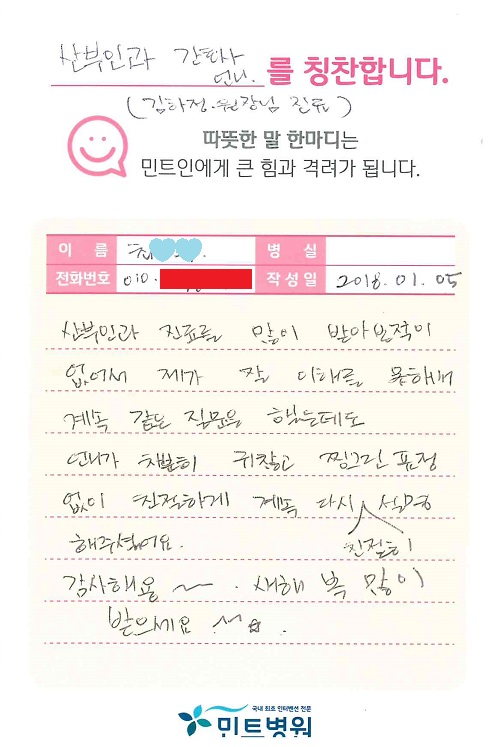 산부인과 간호사 언니. 를 칭찬합니다.
(김하정 원장님 진료)
따뜻한 말 한마디는
민트인에게 큰 힘과 격려가 됩니다.
이 름 최 병 실
전화번호 010. 작성일 2018.01.05
산부인과 진료를 많이 받아본적이
없어서 제가 잘 이해를 못하배
계속 같은 질문을 했는데도
언니가 차분히 귀찮고 찡그린 표정
없이 친절하게 계속 다시 친절히 설명
해주셨어요.
감사해용 ~ . 새해 복 많이
받으세요 ~☆.
국내 최초 인터벤션 전문
민트병원